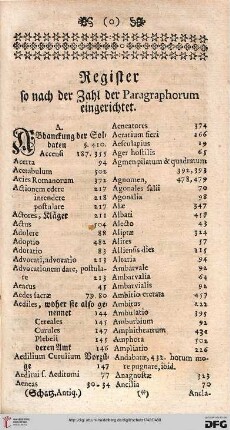 (o)
Register
so nach der Zahl der Paragraphorum
eingerichtet.
A.
Abdanckung der Sol-
daten §. 410.
Accensi 187. 355
Acerra 94
Acetabulum 502
Acies Romanorum 372
Actionem edere 217
intendere 218
postulare 217
Actores, Kläger 211
Actus 504
Adolere 88
Adoptio 482
Adoratio 83
Advocati, advocatio 213
Advocationem dare, postula-
re 213
Aeneus 45
Aedes sacræ 79. 80
Aediles, woher sie also ge-
nennet 144
Cereales 145
Curules 145
Plebeii 145
deren Amt 146
Aedilium Curulium
Aeditui f. Aeditumi 77
Aeneas 30-34
(Schatz, Antiq.)
Aeneatores 374
Aerarium fieri 166
Aesculapius 19
Ager hostilis 65
Agmen pilatum & quadratum
392, 393
Agnomen, 478, 479
Agonales salii 70
Agonia 98
Alæ 347
Albati 457
Alecto 43
Aliptæ 324
Alites 57
Alliensis dies 215
Altaria 94
Ambarvale 92
Ambarvalia 64
Ambarvales 91
Ambitio erorata 457
Ambitus 222
Ambulatio 395
Amburbium 92
Amphitheatrum 441
Amphora 502
Ampliatio 226
Andabatæ, 432. horum mo-
te pugnare, ibid.
Anagnostæ 323
Ancilia 70
(*)
Ancla-
DFG